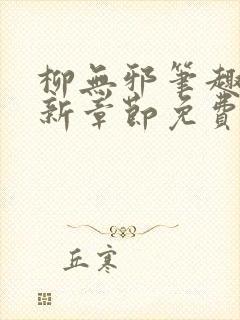 柳無邪筆趣
新章節免費
丘寒